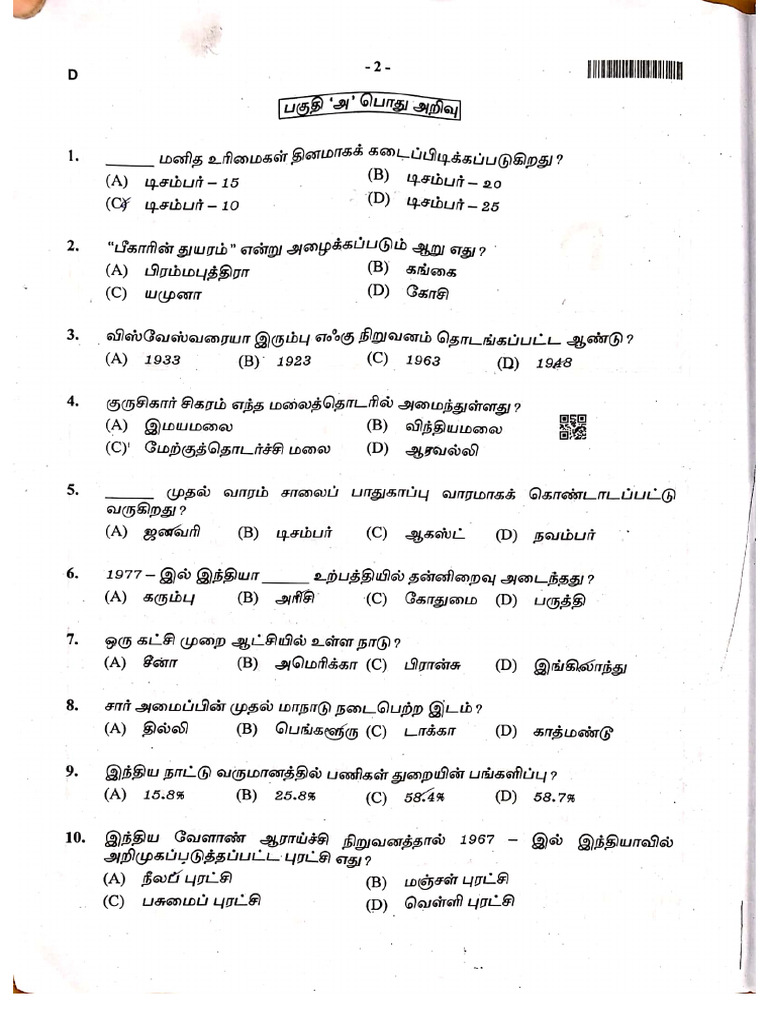 D
- 2 -
பகுதி ‘அ’ பொது அறிவு
1. ______ மனித உரிமைகள் தினமாகக் கடைப்பிடிக்கப்படுகிறது?
(A) டிசம்பர் – 15 (B) டிசம்பர் – 20
(C) டிசம்பர் – 10 (D) டிசம்பர் – 25
2. “பீகாரின் துயரம்” என்று அழைக்கப்படும் ஆறு எது?
(A) பிரம்மபுத்திரா (B) கங்கை
(C) யமுனா (D) கோசி
3. விஸ்வேஸ்வரையா இரும்பு எஃகு நிறுவனம் தொடங்கப்பட்ட ஆண்டு?
(A) 1933 (B) 1923 (C) 1963 (D) 1948
4. குருசிகார் சிகரம் எந்த மலைத்தொடரில் அமைந்துள்ளது?
(A) இமயமலை (B) விந்தியமலை
(C) மேற்குத்தொடர்ச்சி மலை (D) ஆரவல்லி
5. ______ முதல் வாரம் சாலைப் பாதுகாப்பு வாரமாகக் கொண்டாடப்பட்டு
வருகிறது?
(A) ஜனவரி (B) டிசம்பர் (C) ஆகஸ்ட் (D) நவம்பர்
6. 1977 – இல் இந்தியா ______ உற்பத்தியில் தன்னிறைவு அடைந்தது?
(A) கரும்பு (B) அரிசி (C) கோதுமை (D) பருத்தி
7. ஒரு கட்சி முறை ஆட்சியில் உள்ள நாடு?
(A) சீனா (B) அமெரிக்கா (C) பிரான்சு (D) இங்கிலாந்து
8. சார் அமைப்பின் முதல் மாநாடு நடைபெற்ற இடம்?
(A) தில்லி (B) பெங்களூரு (C) டாக்கா (D) காத்மண்டூ
9. இந்திய நாட்டு வருமானத்தில் பணிகள் துறையின் பங்களிப்பு?
(A) 15.8% (B) 25.8% (C) 58.4% (D) 58.7%
10. இந்திய வேளாண் ஆராய்ச்சி நிறுவனத்தால் 1967 – இல் இந்தியாவில்
அறிமுகப்படுத்தப்பட்ட புரட்சி எது?
(A) நீலப் புரட்சி (B) மஞ்சள் புரட்சி
(C) பசுமைப் புரட்சி (D) வெள்ளி புரட்சி